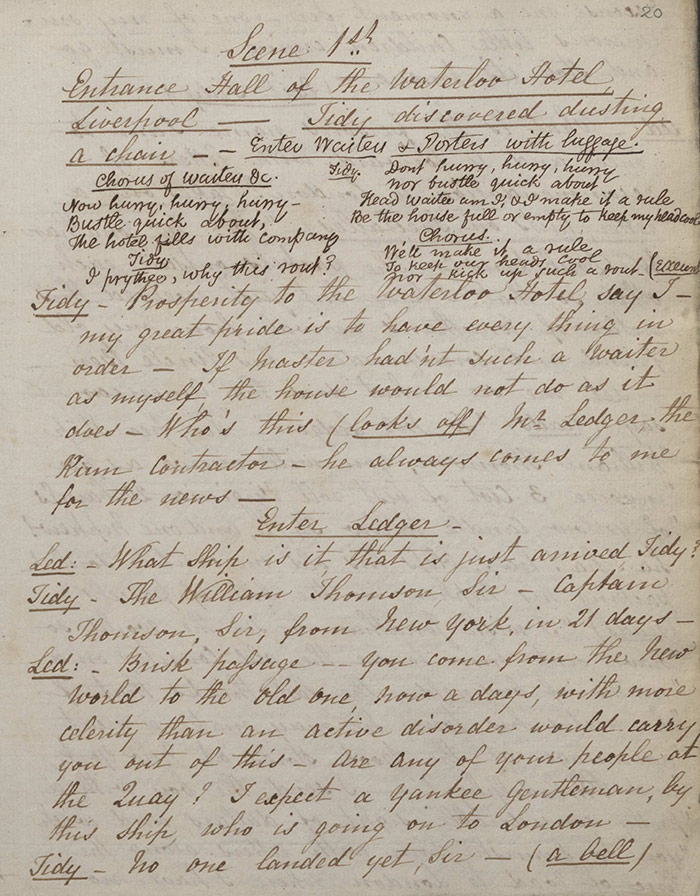 20
Scene 1st
Entrance Hall of the Waterloo Hotel,
Liverpool — Tidy discovered dusting
a chair – – Enter Waiters & Porters with luggage.
Chorus of waiters &c.
Now hurry, hurry, hurry –
Bustle quick about,
The hotel fills with company
Tidy
I prythee, why this rout?
Tidy. Dont hurry, hurry, hurry
nor bustle quick about
Head waiter am I, & I make it a rule
Be the house full or empty to keep my head cool
Chorus.
We'll make it a rule
To keep our heads cool
Nor kick up such a rout – (Exeunt
Tidy – Prosperity to the Waterloo Hotel, say I –
my great pride is to have every thing in
order – If Master had'nt such a Waiter
as myself, the house would not do as it
does – Who's this (looks off) Mr. Ledger the
Rum Contractor – he always comes to me
for the news —
Enter Ledger –
Led: – What Ship is it that is just arrived Tidy?
Tidy – The William Thomson, Sir – Captain
Thomson, Sir, from New York, in 21 days –
Led: – Brisk passage –– you come from the New
World to the Old one, now a days, with more
celerity than an active disorder would carry
you out of this – are any of your people at
the Quay? I expect a Yankee Gentleman, by
this Ship, who is going on to London –
Tidy – No one landed yet, Sir – (a bell)